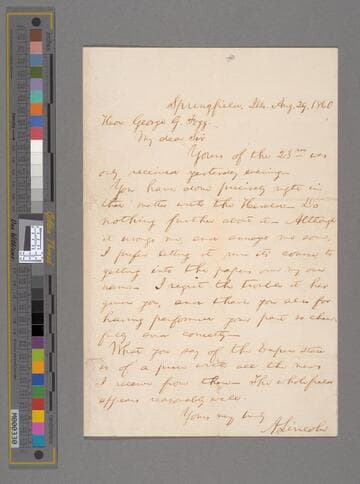 Springfield, Ills. Aug. 29, 1860
Hon. George G. Fogg
My dear Sir
Yours of the 23rd was
only received yesterday evening.
You have done precisely right in
that matter with the Herald. Do
nothing further about it. Although
it wrongs me, and annoys me some,
I prefer letting it run its course, to
getting into the papers over my own
name. I regret the trouble it has
given you, and thank you also for
having performed your part so cheer-
fully and correctly
What you say of the Empire State
is of a piece with all the news
I receive from there. The whole field
appears reasonably well.
Yours very truly
A. Lincoln
M000330